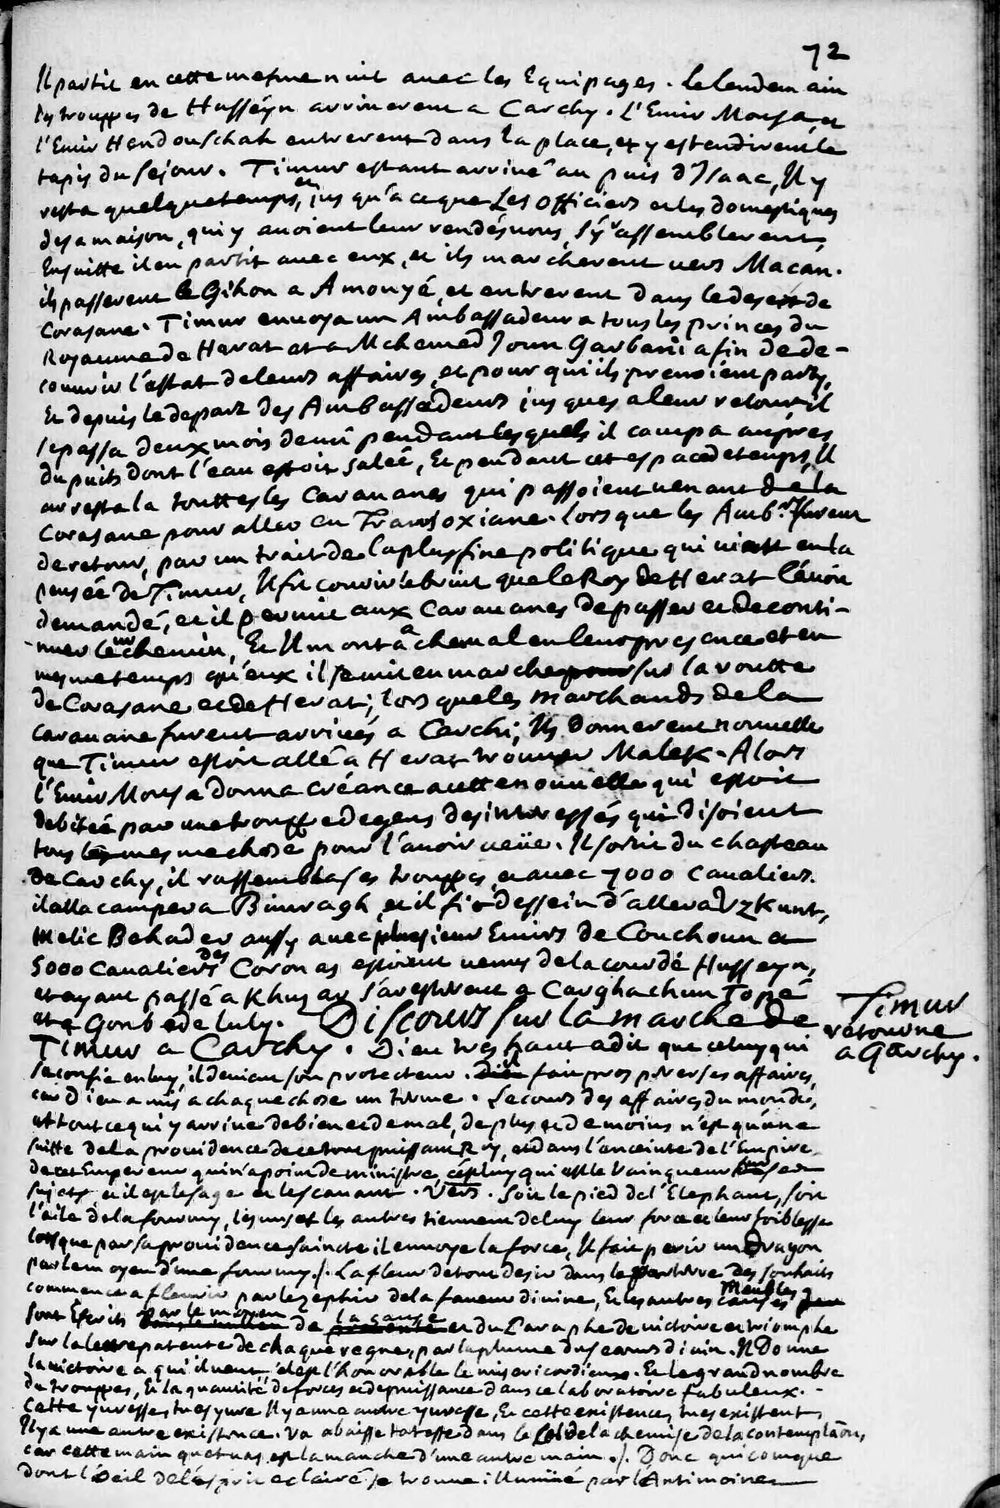 72
Il partit en cette mesme nuit avec les Equipages. Le lendemain
les trouppes de Husseyn arriverent a Carchy. L'Emir Mousa, et
l'Emir Hendouschah entrerent dans la place, et y estendirent le
tapis du sejour. Timur estant arrivé au puis d'Isaac, Il y
resta quelque temps, jus qu'a ce que Les Officiers et les domestiques
de sa maison, qui y avoient leur rendés vous, s'y assemblerent,
Ensuitte il en partit avec eux, et ils marcherent vers Macan.
ils passerent le Gihon a Amouyé, et entrerent dans le desert de
Corasane. Timur envoya un Ambassadeur a tous les princes du
Royaume de Herat et a Mehemed Joun Garbani afin de de-
couvrir l'estat de leurs affaires, et pour qui ils prenoient party,
Et depuis le depart des Ambassadeurs jus ques a leur retour il
se passa deux mois demi pendant lesquels il campa aupres
du puits dont l'eau estoit salée, Et pendant cet espace de temps, Il
arresta touttes les Caravanes qui passoient venant de la
Corasane pour aller en Transoxiane. Lors que les Amb.rs furent
de retour, par un trait de la plus fine politique qui vint en la
pensée de Timur, Il fit courir le bruit que le Roy de Herat l'avoit
demandé, et il permit aux Caravanes de passer et de conti-
nuer leur chemin, Et Il monta a cheval en leur presence et en
mesme temps qu'eux il se mit en marche sur la routte
de Corasane et de Herat; lors que les marchands de la
caravane furent arrivés a Carchi, Ils donnerent nouvelle
que Timur estoit allé a Herat trouver Malek. Alors
l'Emir Mousa donna créance a cette nouvelle qui estoit
debitée par une trouppe de gens desinteressés qui disoient
tous la mesme chose pour l'avoir veüe. Il sortit du chasteau
de Carchy, il rassembla ses trouppes, et avec 7000 Cavaliers
il alla camper a Bimragh, et il fit dessein d'aller a Uzkunt,
Melic Behader aussy avec plusieurs Emirs de Couchoun a
5000 Cavaliers des Coronas estoient venus de la cour de Husseyn,
et ayant passé a Khuzar s'arresterent a Carghachun Toppé
et a Gonbede Luly. Discours sur la marche de
Timur a Carchy. Dieu tres haut a dit que celuy qui
se confie en luy, il devient son protecteur. fait prosperer ses affaires,
car Dieu a mis a chaque chose un terme. Le cours des affaires du monde,
et tout ce qui y arrive de bien et de mal, de plus et de moins n'est qu'une
suitte de la providence de ce tout puissant Roy, et dans l'anceinte de l'Empire
de cet Empereur qui n'a point de ministre, c'est luy qui est le Vainqueur
sujets, et il est le sage et le scavant. Vers. Soit le pied de l'Elephant, soit
l'aile de la fourmy, les uns et les autres tiennent de luy leur force et leur foiblesse
lors que par sa providence saincte il envoye la force, Il fait perir un Dragon
par le moyen d'une fourmy./. La fleur de tout desir dans le parterre des souhaits
commence a fleurir par le Zephir de la faveur divine, Et les autres Meubles
sont Escrits par le moyen de la cause et du Paraphe de victoire et triomphe
sur la lettre patente de chaque regne, par la plume du secours divin. Il Donne
la victoire a qui il veut, c'est l'honorable le misericordieux. Et le grand nombre
de trouppes, Et la quantité de forces et de puissance dans ce laboratoire fabuleux.
Cette yvresse, tu es yvre Il y a une autre yvresse, Et cette existence, tu es existent,
Il y a une autre existence. Va abaisse ta teste dans le Col de la chemise de la contemplaōn,
car cette main que tu as, est la manche d'une autre main./. Donc quiconque
dont l'oeil de l'esprit eclairé se trouve illuminé par l'Antimoine
Timur
retourne
a Garchy.